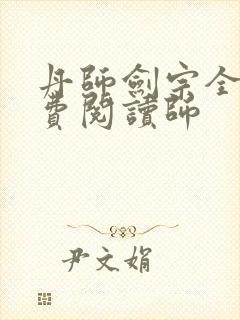 丹師劍宗全
費閱讀師
尹文娟